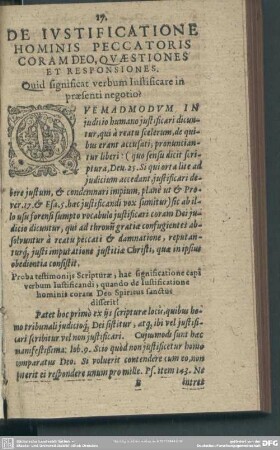 17.
DE IVSTIFICATIONE
HOMINIS PECCATORIS
CORAM DEO, QVÆSTIONES
ET RESPONSIONES.
Quid significat verbum Iustificare in
præsenti negotio?
QVEMADMODVM IN
iuditio humano iustificari dicun-
tur, qui à reatu scelerum, de qui-
bus erant accusati, pronuncian-
tur liberi: (quo sensu dicit scrip-
ptura, Deu. 25. Si qui orta lite ad
iudicium accedant iustificari de-
bere iustum, & condemnari impium, planè ut & Pro-
ver. 17. & Esa. 5. hac iustificandi vox sumitur) sic ab il-
lo usu forensi sumpto vocabulo iustificari coram Dei ju-
dicio dicuntur, qui ad thronū gratiæ confugientes ab-
solvuntur à reatu peccati & damnatione, reputan-
turq́, iusti imputatione iustitiæ Christi, quæ in ipsius
obedientia consistit.
Proba testimonijs Scripturæ, hac significatione capi
verbum Iustificandi, quando de Iustificatione
hominis coram Deo Spiritus sanctus
disserit?
Patet hoc primo ex ijs scripturæ locis, quibus ho-
mo tribunali judicioq́; Dei sistitur, atq́; ibi vel justifi-
cari scribitur vel non justificari. Cujusmodi sunt hæc
manifestissima: Iob. 9. Scio quod non justificetur homo
comparatus Deo. Si voluerit contendere cum eo, non
poterit ei respondere unum pro mille. Ps. item 143. Ne
intres